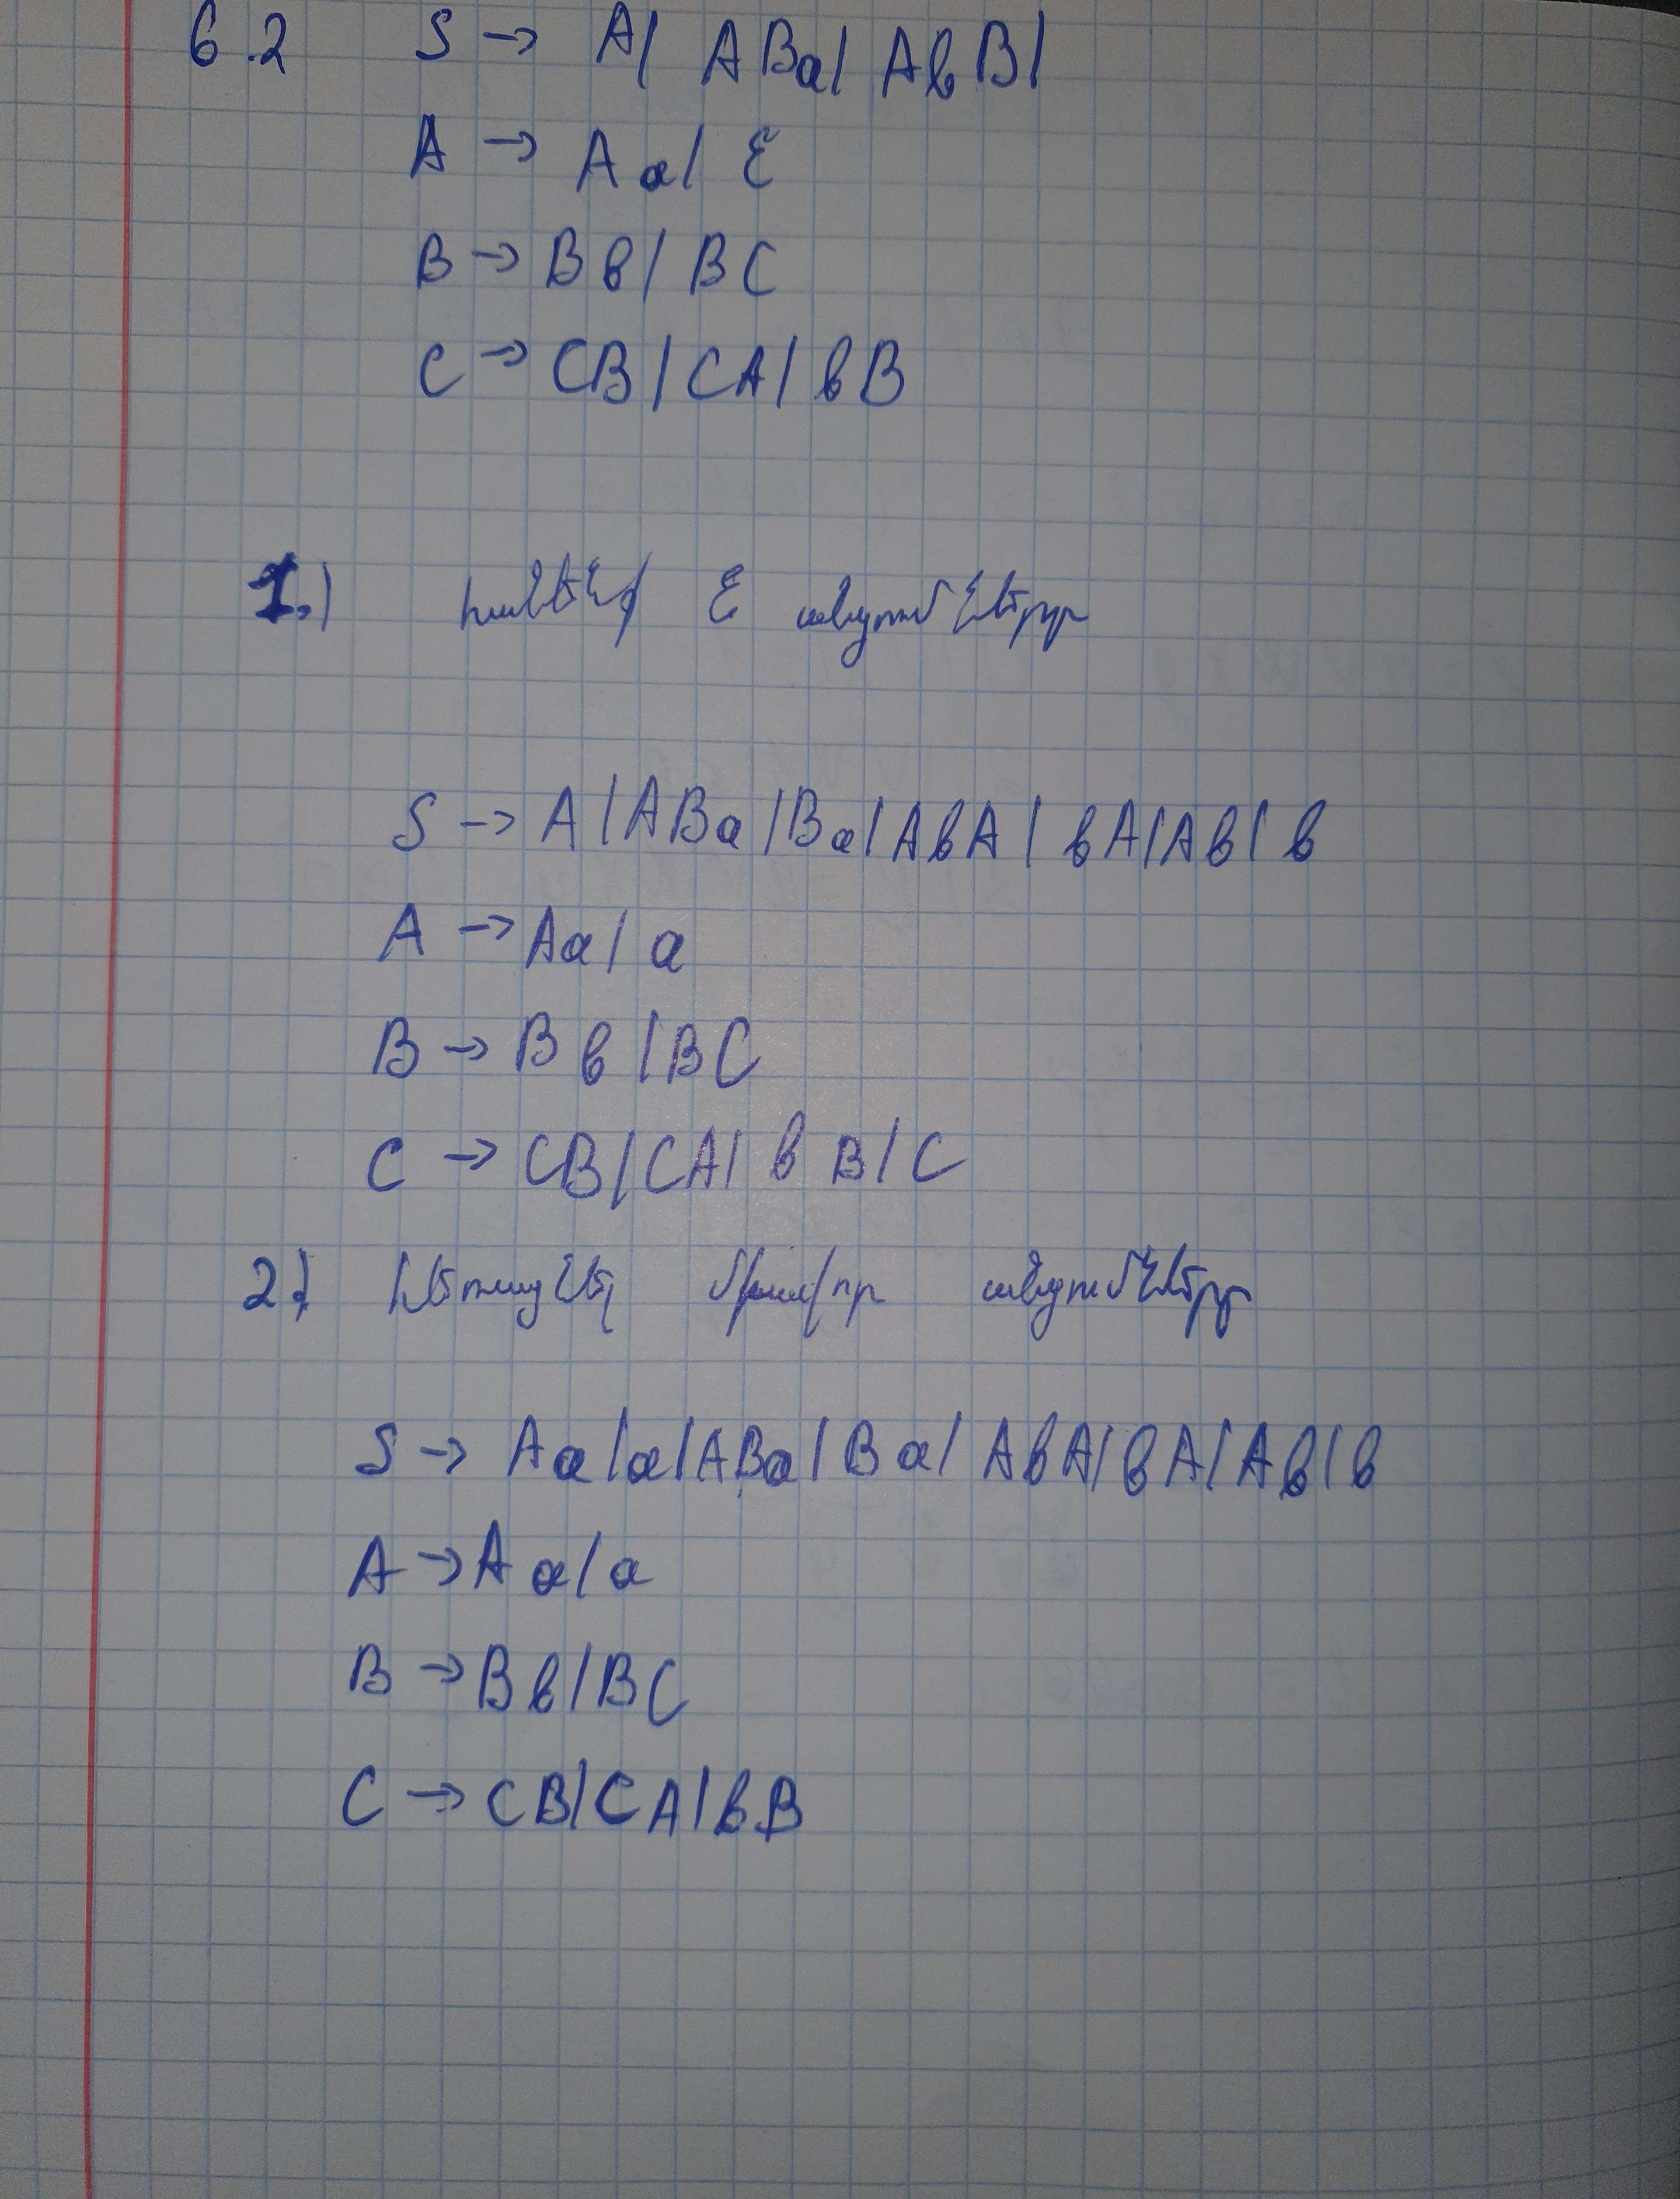 6.2 S → A| ABa| AbB|
A → Aa| ε
B → Bb| BC
C → CB| CA| bB
1.) հանենք ε անցումները
S → A| ABa| Ba| AbA| bA| Ab| b
A → Aa| a
B → Bb| BC
C → CB| CA| bB| C
2) հեռացնել միավոր անցումները
S → Aa| a| ABa| Ba| AbA| bA| Ab| b
A → Aa| a
B → Bb| BC
C → CB| CA| bB